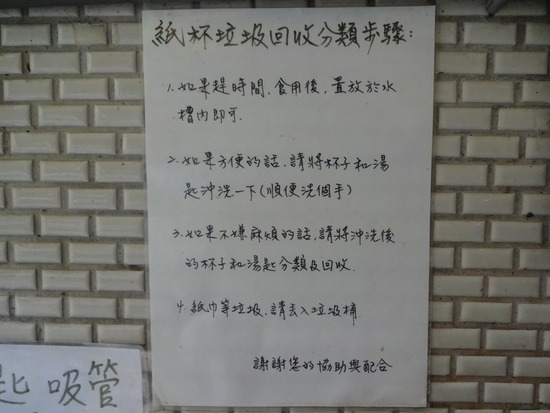 紙杯垃圾回收分類步驟:
1. 如果趕時間,食用後,置放於水
槽內即可.
2. 如果方便的話,請將杯子和湯
匙沖洗一下(順便洗個手)
3. 如果不嫌麻煩的話,請將沖洗後
的杯子和湯匙分類及回收.
4. 紙巾等垃圾,請丟入垃圾桶.
謝謝您的協助與配合
匙 吸管